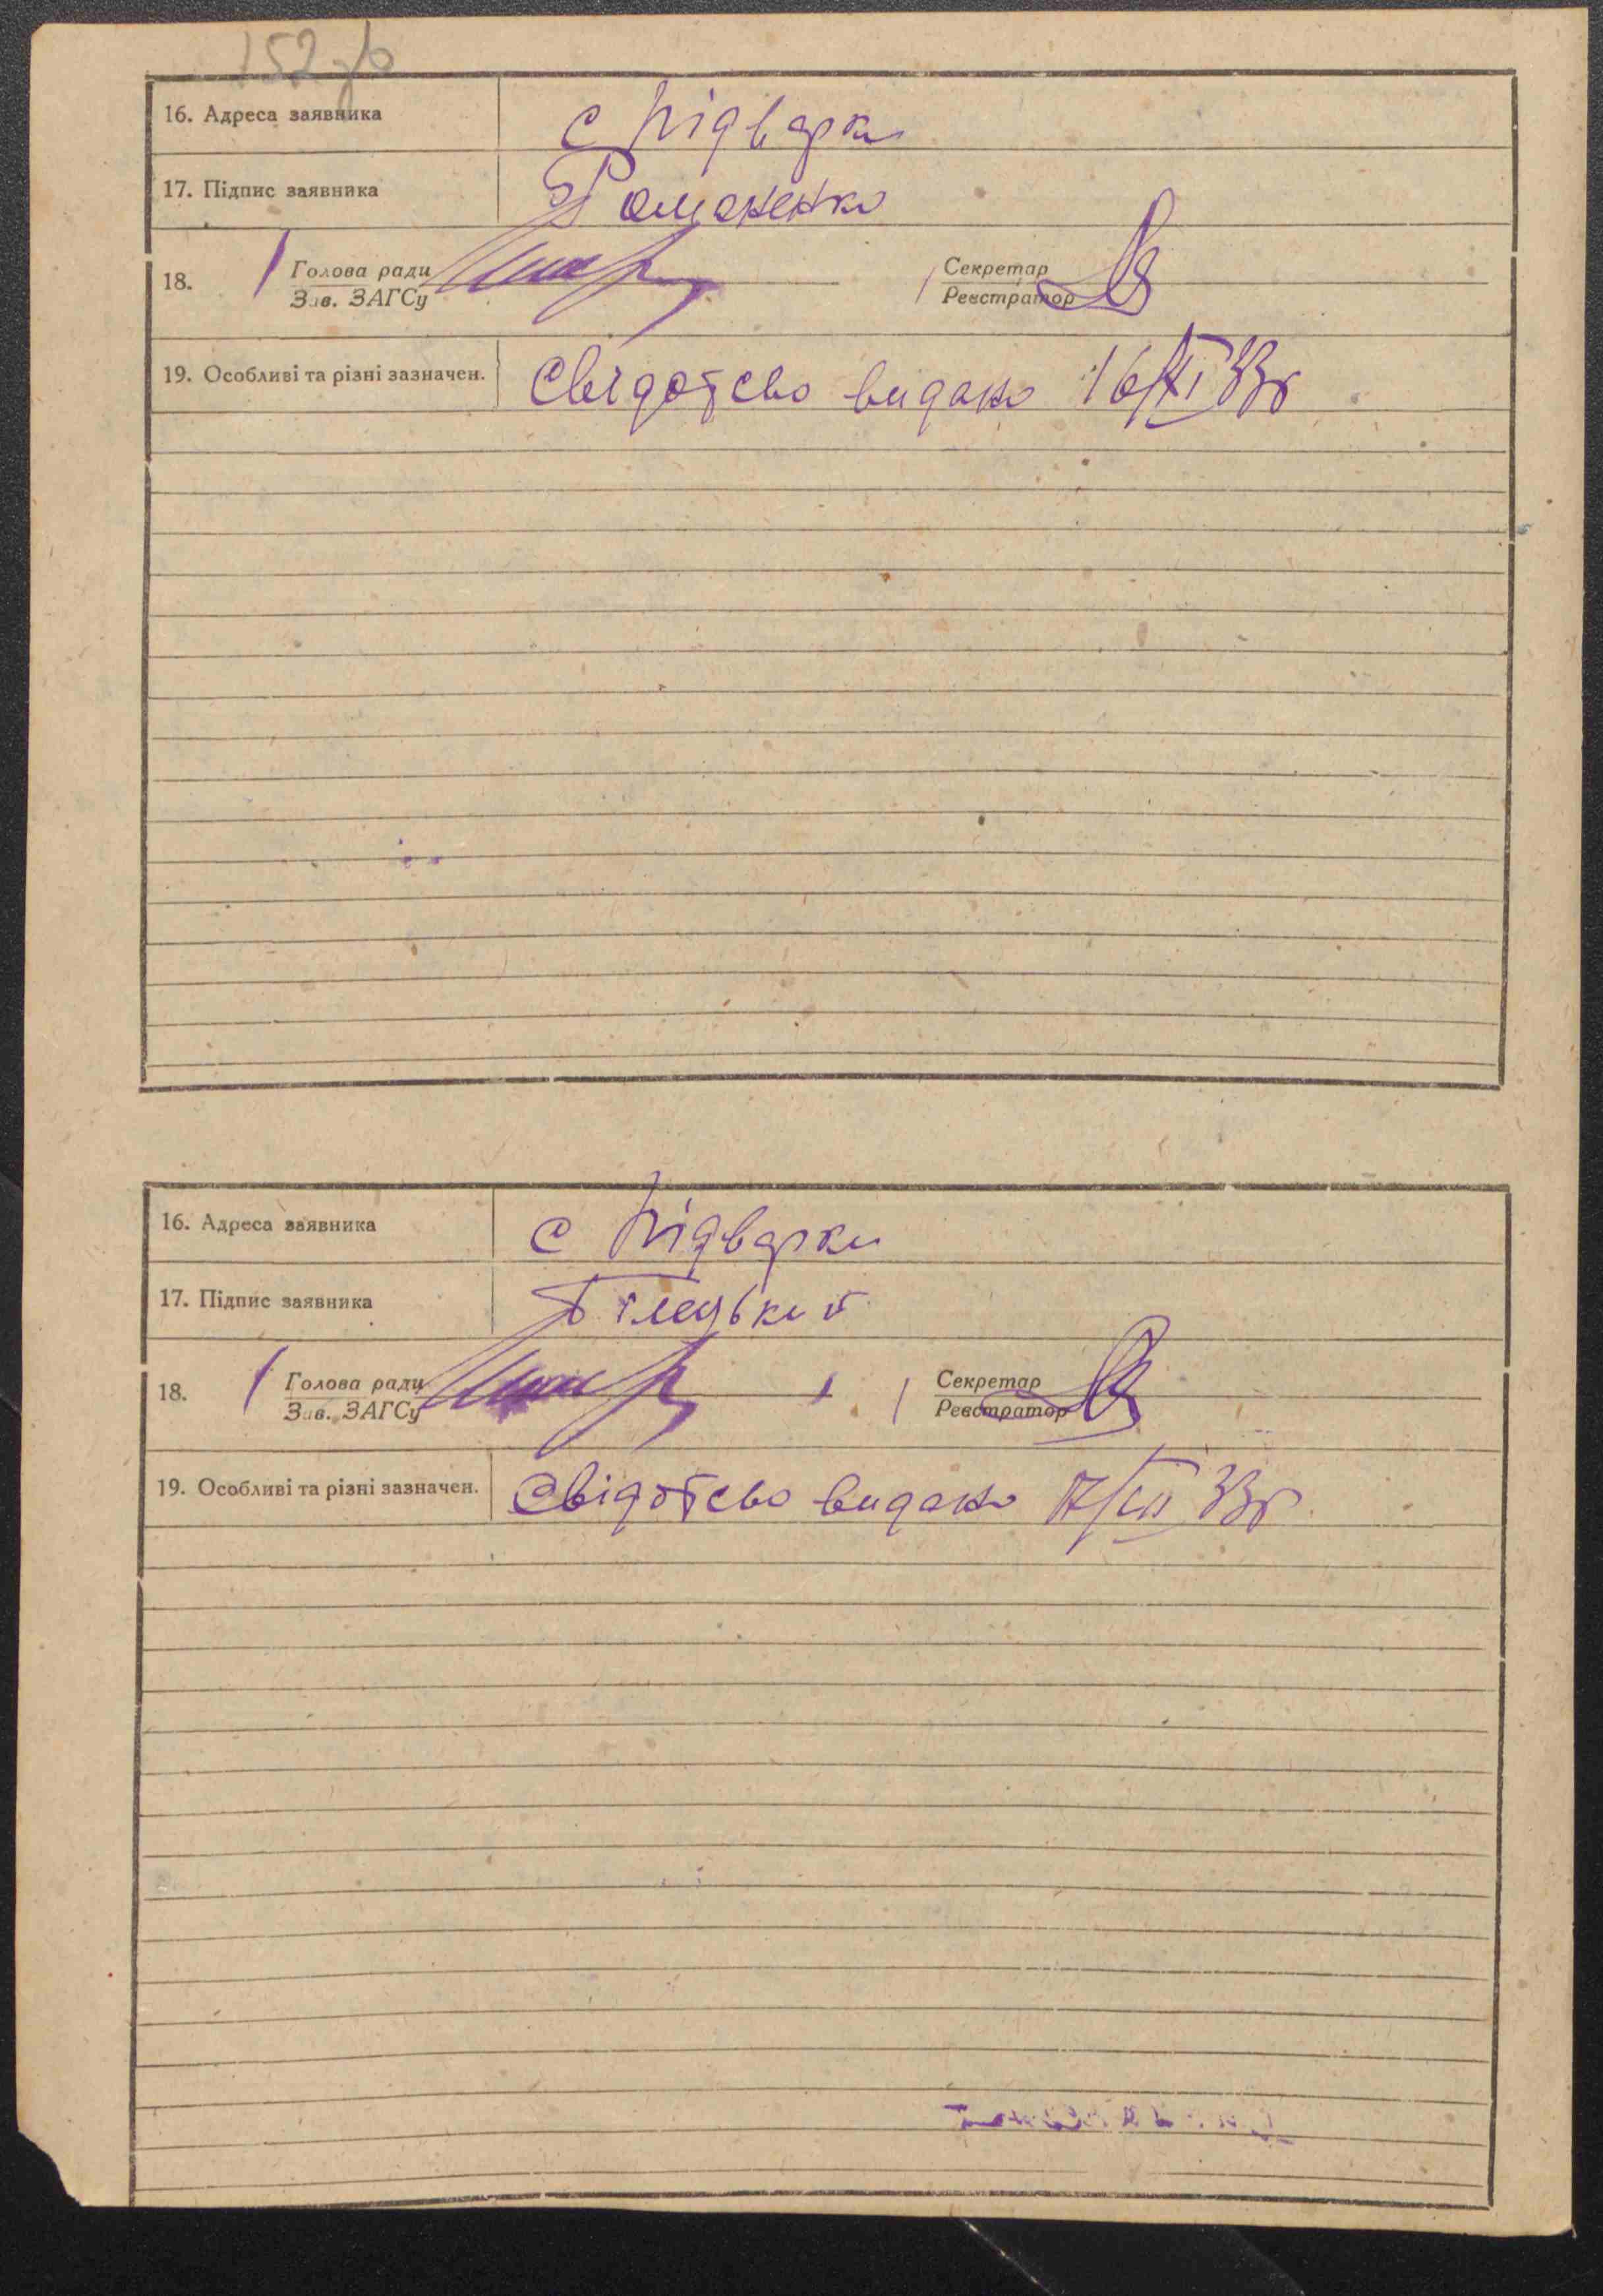 152 зв
16. Адреса заявника с Підварки
17. Підпис заявника Романенко
18. Голова ради Секретар
Зав. ЗАГСу Реєстратор
19. Особливі та різні зазначен. Свідотсво видано 16/XI 33р
16. Адреса заявника с Підварки
17. Підпис заявника Білецький
18. Голова ради Секретар
Зав. ЗАГСу Реєстратор
19. Особливі та різні зазначен. Свідотсво видано 33р